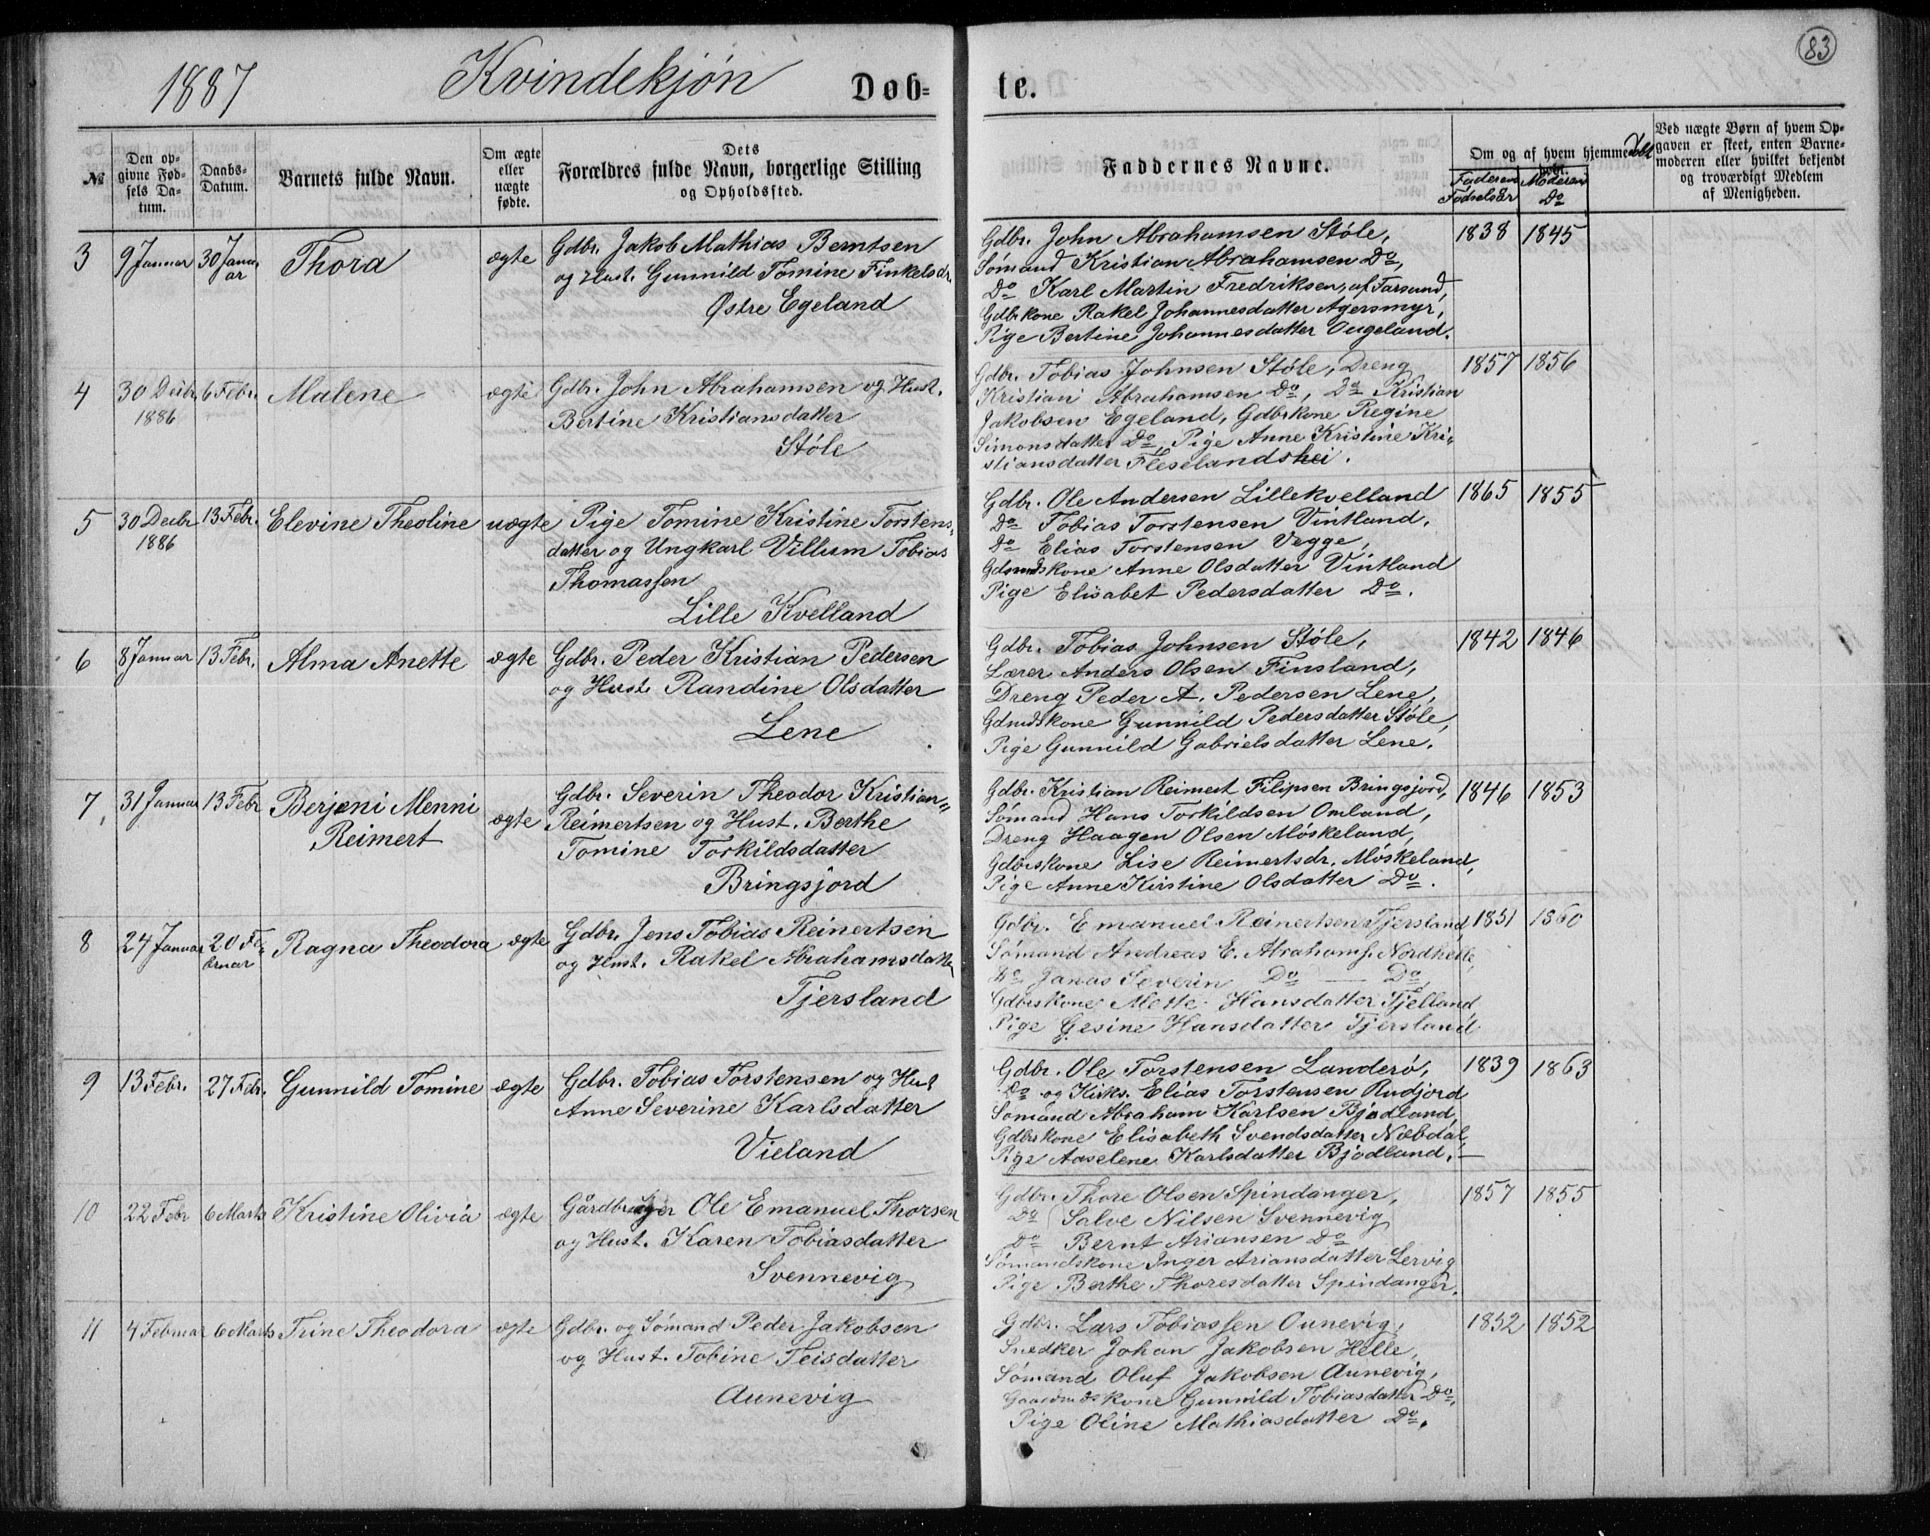 83
1887
Kvindekjøn
Døb=
te.
№
Den op-
givne Fød-
sels Da-
tum.
Daabs-
Datum.
Barnets fulde Navn.
Om ægte
eller
uægte
fødte.
Dets
Forældres fulde Navn, borgerlige Stilling
og Opholdssted.
Faddernes Navne.
Om og af hvem hjemmedøbt
Faderens
Fødselsår
Moderens
Do
Ved uægte Børn af hvem Op-
gaven er skeet, enten Barne-
moderen eller hvilket bekjendt
og troværdigt Medlem
af Menigheden.
3
9 Januar
30 Janu-
ar
Thora
ægte
Gdbr. Jakob Mathias Berntsen
og Hust. Gunnild Tomine Finkelsdr.
Østre Egeland
Gdbr. John Abrahamsen Støle,
Sømand Kristian Abrahamsen Do,
Do Karl Martin Fredriksen, af Farsund,
Gdbkone Rakel Johannesdatter Agersmyr,
Pige Bertine Johannesdatter Ougeland.
1838
1845
4
30 Decbr
1886
6 Febr.
Malene
ægte
Gdbr. John Abrahamsen og Hust.
Bertine Kristiansdatter
Støle
Gdbr. Tobias Johnsen Støle, Dreng
Kristian Abrahamsen Do, Do Kristian
Jakobsen Egeland, Gdbrkone Regine
Simonsdatter Do, Pige Anne Kristine Kri-
stiansdatter Fleselandshei.
1857
1856
5
30 Decbr
1886
13 Febr.
Elevine Theoline
uægte
Pige Tomine Kristine Torstens-
datter og Ungkarl Villum Tobias
Thomassen
Lille Kvelland
Gdbr. Ole Andersen Lillekvelland
Do Tobias Torstensen Vintland,
Do Elias Torstensen Vegge,
Gdmdskone Anne Olsdatter Vintland
Pige Elisabet Pedersdatter Do.
1865
1855
6
8 Januar
13 Febr.
Alma Anette
ægte
Gdbr. Peder Kristian Pedersen
og Hust. Randine Olsdatter
Lene
Gdbr. Tobias Johnsen Støle,
Lærer Anders Olsen Finsland,
Dreng Peder A. Pedersen Lene,
Gdmdskone Gunnild Pedersdatter Støle,
Pige Gunnild Gabrielsdatter Lene.
1842
1846
7,
31 Januar
13 Febr
Berjeni Menni
Reimert
ægte
Gdbr. Severin Theodor Kristian
Reimertsen og Hust. Berthe
Tomine Torkildsdatter
Bringsjord
Gdbr. Kristian Reimert Filipsen Bringsjord,
Sømand Hans Torkildsen Omland,
Dreng Haagen Olsen Møskeland,
Gdbrskone Lise Reimertsdr. Møskeland,
Pige Anne Kirstine Olsdatter Do.
1846
1853
8
24 Januar
20 Fe-
bruar
Ragna Theodora
ægte
Gdbr. Jens Tobias Reinertsen
og Hust. Rakel Abrahamsdatter
Tjersland
Gdbr. Emanuel Reinertsen Tjersland,
Sømand Andreas E. Abrahams. Nordhelle,
Do Janas Severin Do — Do,
Gdbrskone Mette Hansdatter Tjelland
Pige Gesine Hansdatter Tjersland
1851
1860
9
13 Febr.
27 Febr.
Gunnild Tomine
ægte
Gdbr. Tobias Torstensen og Hust
Anne Severine Karlsdatter
Vieland
Gdbr. Ole Torstensen Landerø,
Do og Kirks. Elias Torstensen Rudjord
Sømand Abraham Karlsen Bjødland,
Gdbrkone Elisabeth Svendsdatter Næbdal,
Pige Aaselene Karlsdatter Bjodland.—
1839
1863
10
22 Febr
6 Marts
Kristine Olivia
ægte
Gårdbruger Ole Emanuel Thorsen
og Hust. Karen Tobiasdatter
Svennevig
Gdbr. Thore Olsen Spindanger,
Do Salve Nilsen Svennevig
Do Bernt Ariansen Do
Sømandskone Inger Ariansdatter Lervig
Pige Berthe Thoresdatter Spindanger.
1857
1855
11
4 Februar
6 Marts
Trine Theodora
ægte
Gdbr. og Sømand Peder Jakobsen
og Hust. Tobine Teisdatter
Aunevig
Gdbr. Lars Tobiassen Aunevig,
Snedker Johan Jakobsen Helle,
Sømand Oluf Jakobsen Aunevig,
Gaardmdskone Gunnild Tobiasdatter Do,
Pige Oline Mathiasdatter Do.
1852
1852